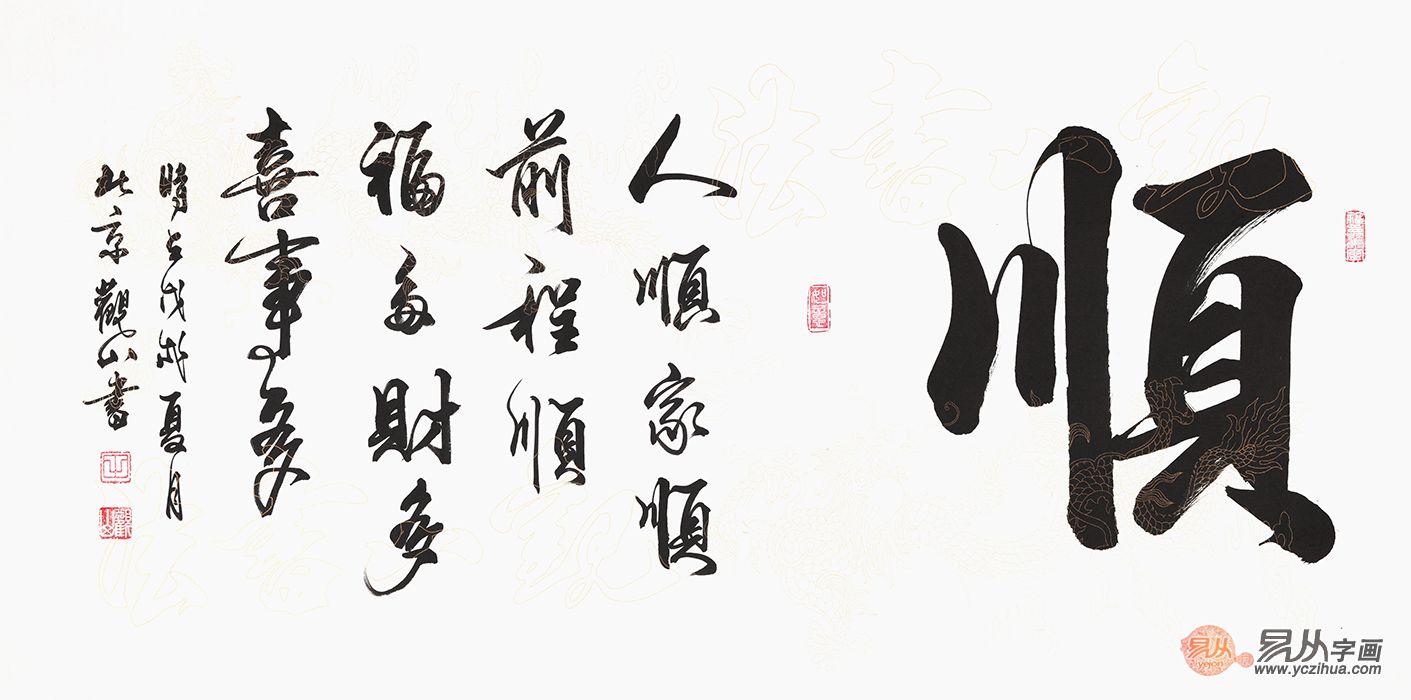 順
人順家順
前程順
福多財多
喜事多
時在戊戌夏月
北京觀山書
如意
觀山
易从
yejon
易从字画
www.yczihua.com